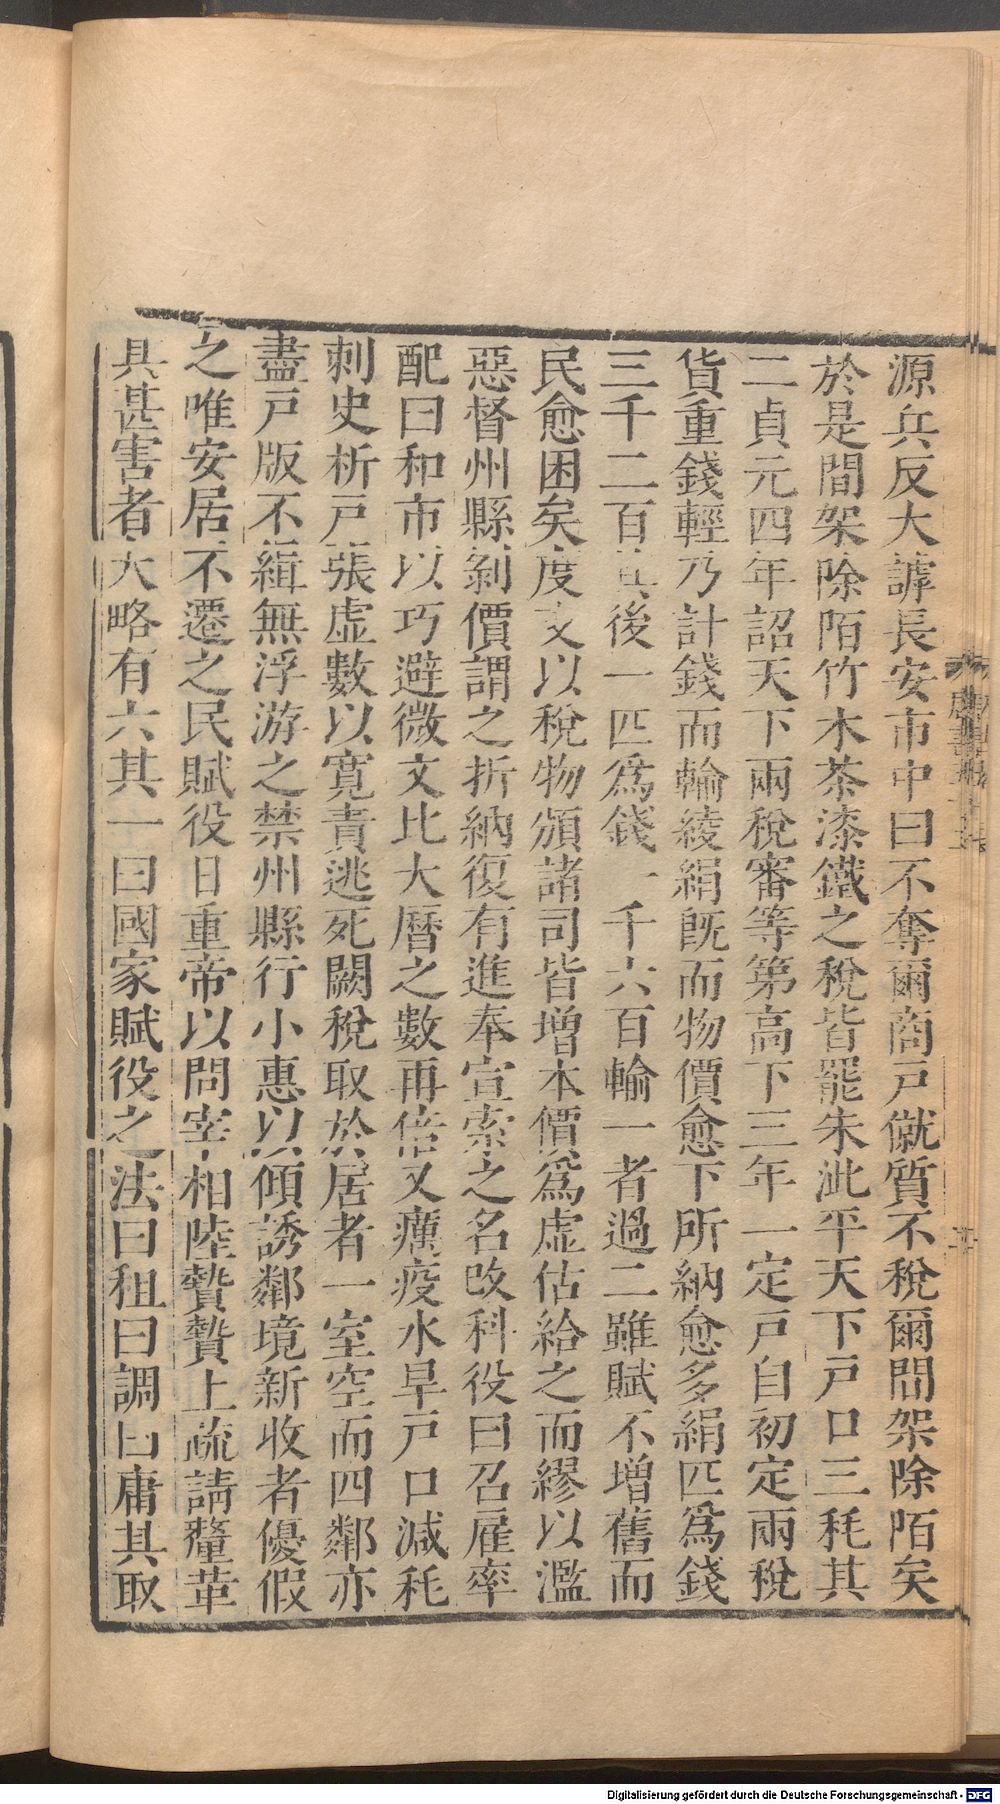 源兵反大謼長安市中曰不奪爾商戸僦質不稅爾間架除陌矣
於是間架除陌竹木茶漆鐵之稅皆罷朱泚平天下戸口三耗其
二貞元四年詔天下兩稅審等第高下三年一定戸自初定兩稅
貨重錢輕乃計錢而輸綾絹旣而物價愈下所納愈多絹匹爲錢
三千二百其後一匹爲錢一千六百輸一者過二雖賦不增舊而
民愈困矣度支以稅物頒諸司皆增本價爲虛估給之而繆以濫
惡督州縣剝價謂之折納復有進奉宣索之名改科役曰召雇率
配曰和市以巧避微文比大曆之數再倍又癘疫水旱戸口減耗
刺史析戸張虛數以寬責逃死闕稅取於居者一室空而四鄰亦
盡戸版不緝無浮游之禁州縣行小惠以傾誘鄰境新收者優假
之唯安居不遷之民賦役日重帝以問宰相陸贄贄上疏請釐革
其甚害者大略有六其一曰國家賦役之法曰租曰調曰庸其取
Digitalisierung gefördert durch die Deutsche Forschungsgemeinschaft - DFG